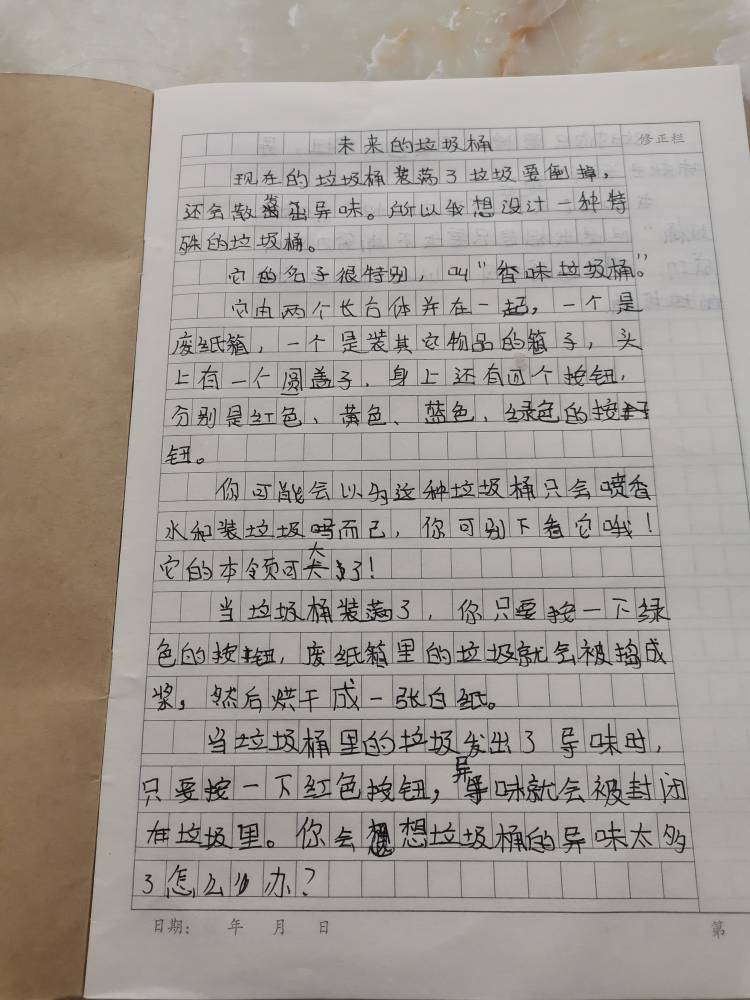 未来的垃圾桶
修正栏
现在的垃圾桶装满了垃圾要倒掉,
还会散出异味。所以我想设计一种特
殊的垃圾桶。
它的名子很特别,叫"香味垃圾桶。"
它由两个长台体并在一起,一个是
废纸箱,一个是装其它物品的箱子,头
上有一个圆盖子,身上还有四个按钮,
分别是红色、黄色、蓝色、绿色的按
钮。
你可能会以为这种垃圾桶只会喷香
水和装垃圾而已,你可别下看它哦!
它的本领可大了!
当垃圾桶装满了,你只要按一下绿
色的按钮,废纸箱里的垃圾就会被捣成
浆,然后烘干成一张白纸。
当垃圾桶里的垃圾发出了异味时,
只要按一下红色按钮,异味就会被封闭
在垃圾里。你会想垃圾桶的异味太多
了怎么办?
日期: 年 月 日
第